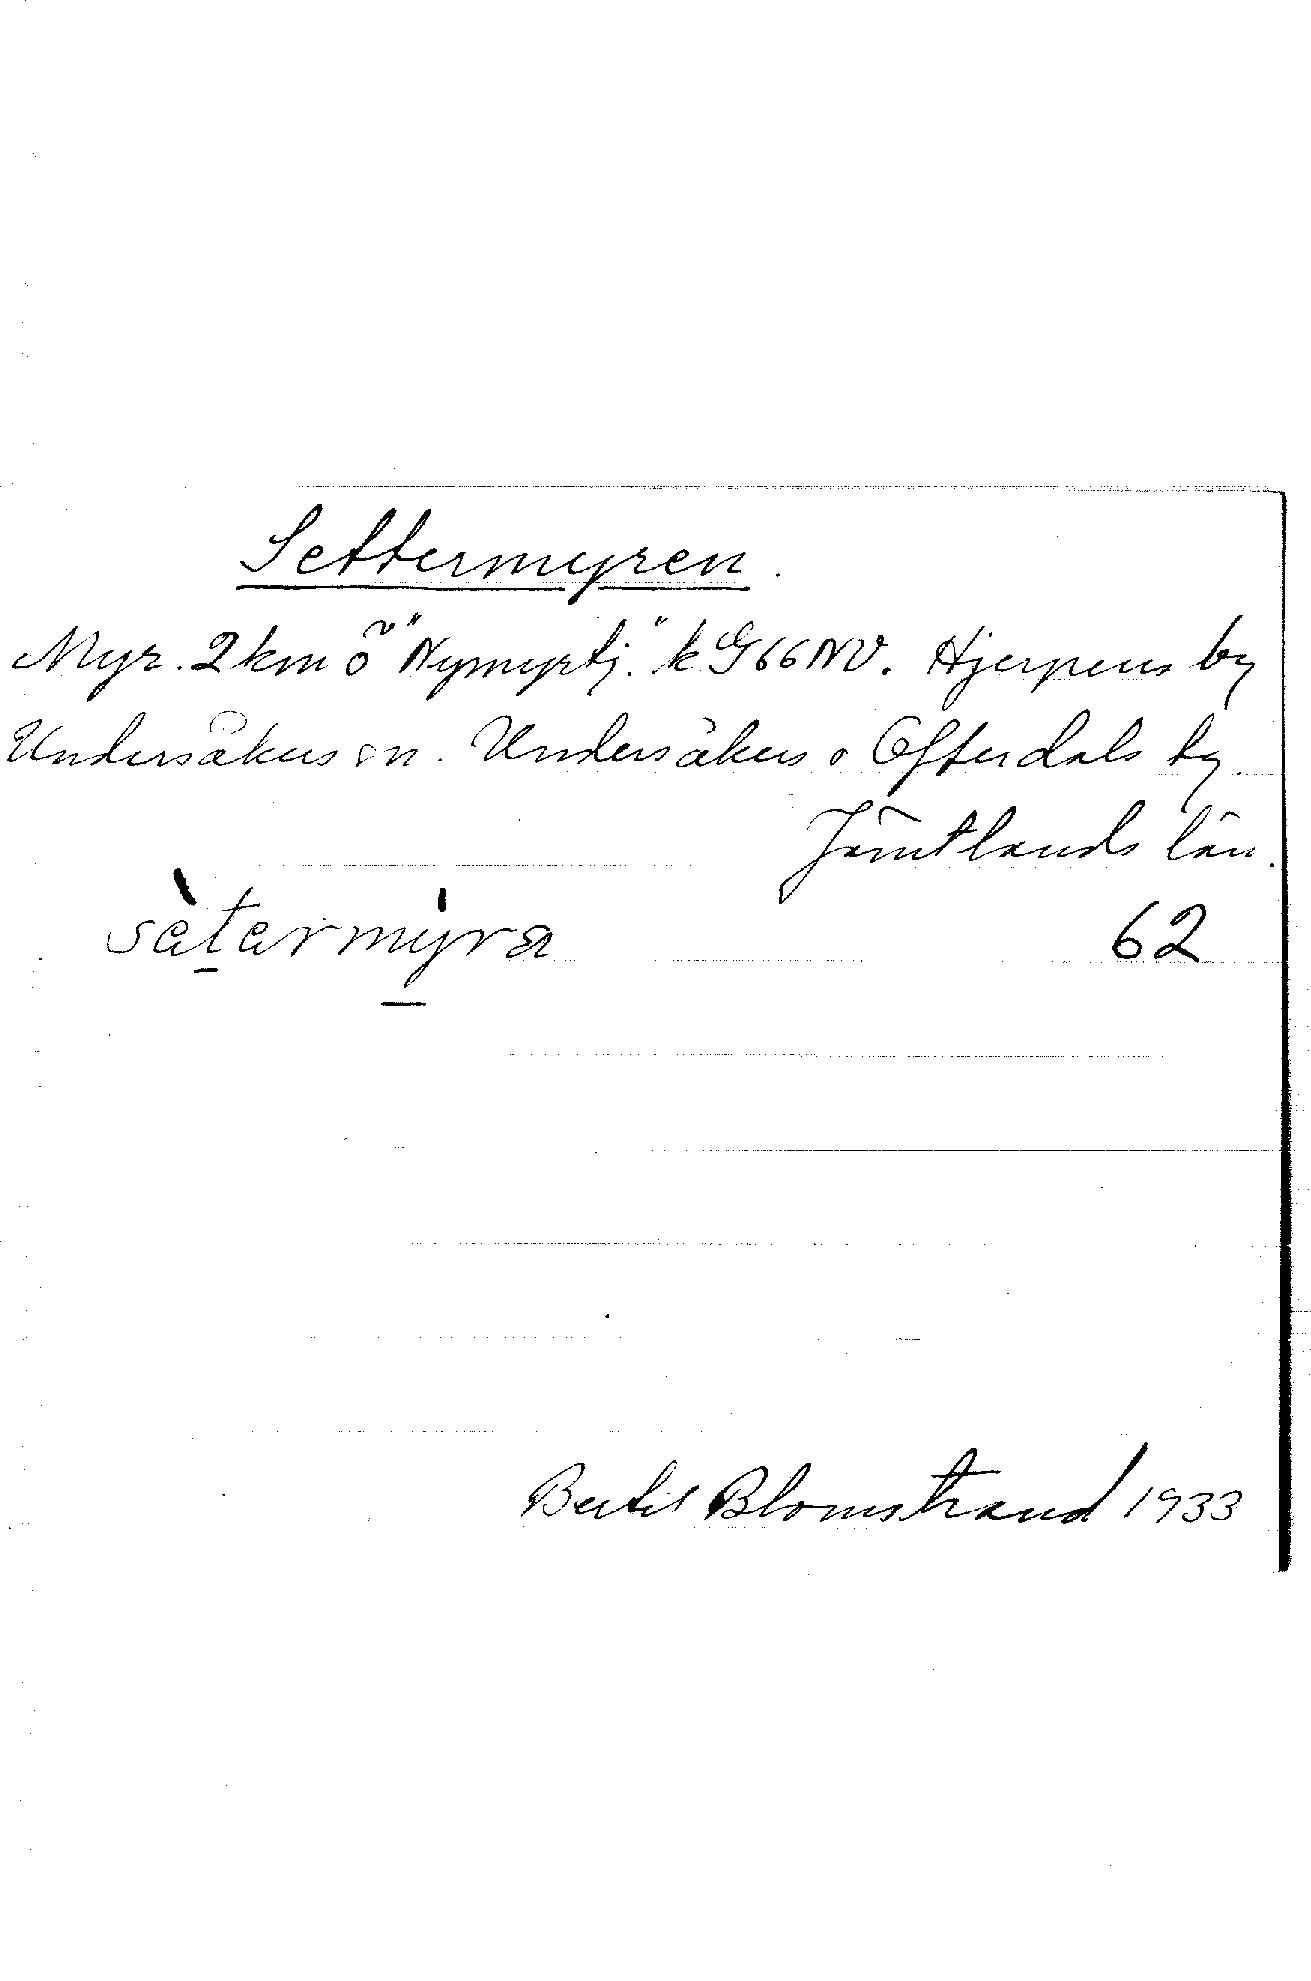 Settermyren.
Myr. 2 km ö "Nymyrtj." k G66NV. Hjerpens by
Undersåkers sn. Undersåkers o Offerdals by
Jämtlands län.
sètermýra 62
Bertil Blomstrand 1933